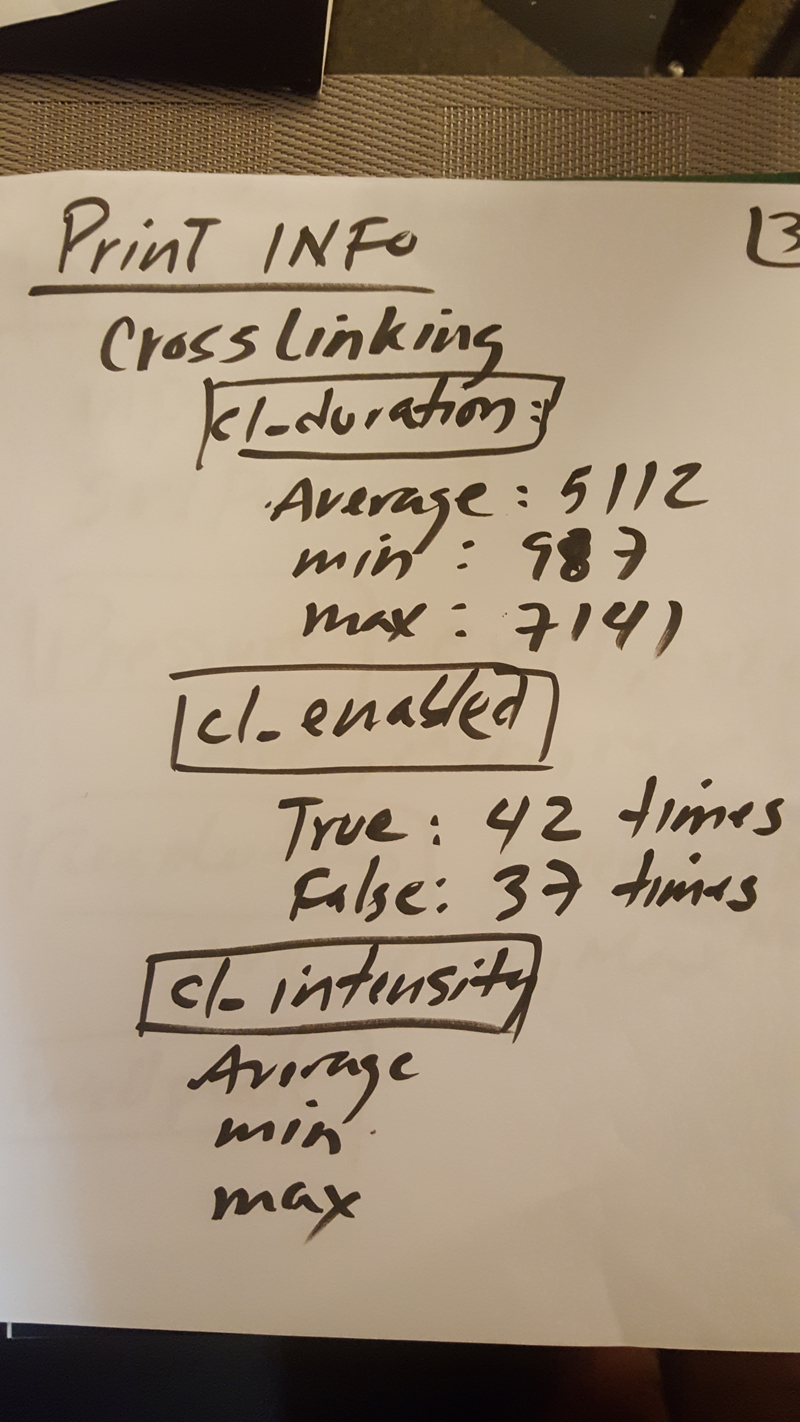 Print INFO
3
Crosslinking
cl_duration:
Average: 5112
min: 987
max: 7141
cl_enabled
True: 42 times
False: 37 times
cl_intensity
Average
min
max